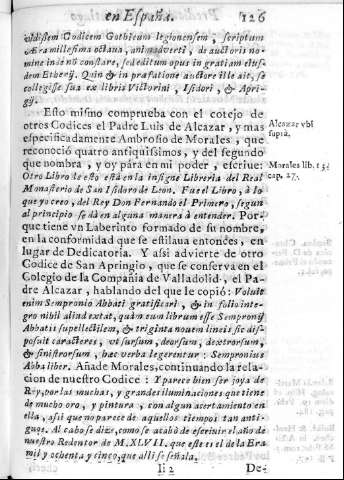 en España. 126
vidissem Codicem Gothicum legionensem, scriptum
Æra millesima octava, animadverti, de auctoris no-
mine inde nō constare, sed editum opus in gratiam eius-
dem Etherij. Quin & in præfatione auctor ille ait, se
collegisse sua ex libris Victorini, Isidori, & Aprin-
gij.
Esto mismo comprueba con el cotejo de
otros Codices el Padre Luis de Alcazar, y mas
especificadamente Ambrosio de Morales, que
reconoció quatro antiquissimos, y del segundo
que nombra, y oy pára en mi poder, escrive:
Otro Libro de esto està en la insigne Libreria del Real
Monasterio de San Isidoro de Leon. Fue el Libro, à lo
que yo creo, del Rey Don Fernando el Primero, segun
al principio se dà en alguna manera à entender. Por-
que tiene vn Laberinto formado de su nombre,
en la conformidad que se estilaua entonces, en
lugar de Dedicatoria. Y assi advierte de otro
Codice de San Apringio, que se conserva en el
Colegio de la Compañia de Valladolid, el Pa-
dre Alcazar, hablando del que le copió: Voluit
enim Sempronio Abbati gratificari, & in folio inte-
gro nihil aliud extat, quàm eum librum esse Sempronij
Abbatis supellectilem, & triginta novem lineis sic dis-
posuit caracteres, vt sursum, deorsum, dextrorsum,
& sinistrorsum, hæc verba legerentur: Sempronius
Abba liber. Añade Morales, continuando la rela-
cion de nuestro Codice: Y parece bien ser joya de
Rey, por las muchas, y grandes iluminaciones que tiene
de mucho oro, y pintura, con algun acertamiento en
ella, assi que no parece de aquellos tiempos tan anti-
guos. Al cabo se dize, como se acabò de escrivir el año de
nuestro Redentor de M.XLVII. que este es el de la Era
mil y ochenta y cinco, que alli se señala.
Ii 2 De-
Alcazar vbi
suprà.
Morales lib. 13.
cap. 27.